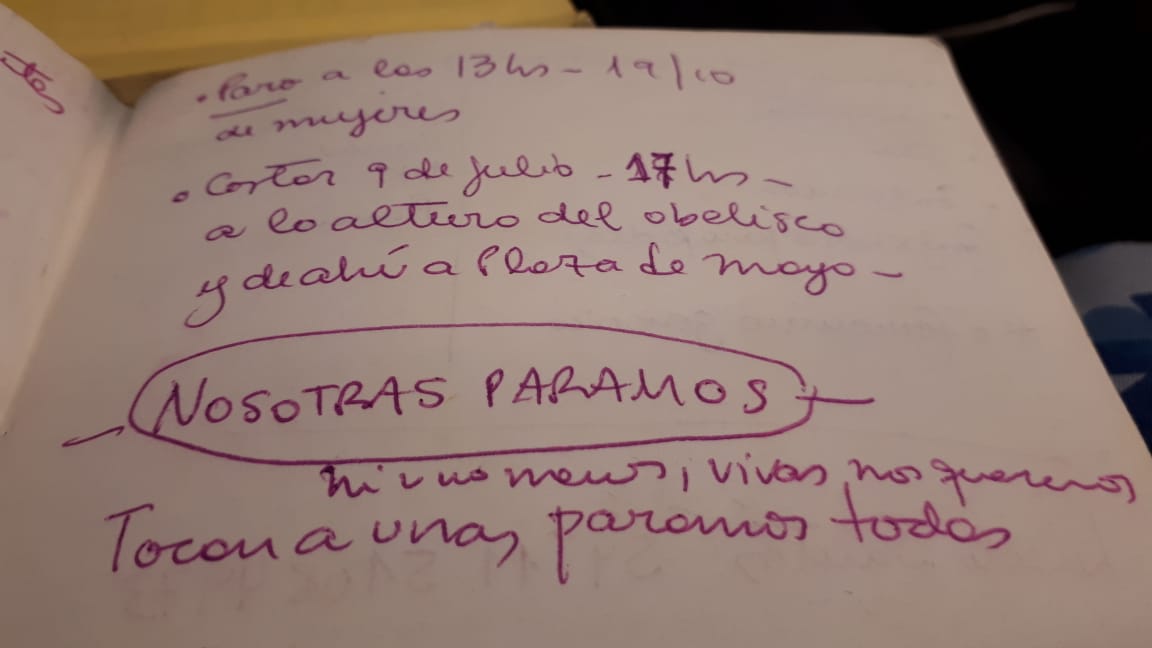 • Paro a las 13hs - 19/10
de mujeres
• Cortar 9 de julio - 17hs -
a la altura del obelisco
y de ahí a Plaza de mayo -
NOSOTRAS PARAMOS
ni una menos, vivas nos queremos
Tocan a unas, paramos todas